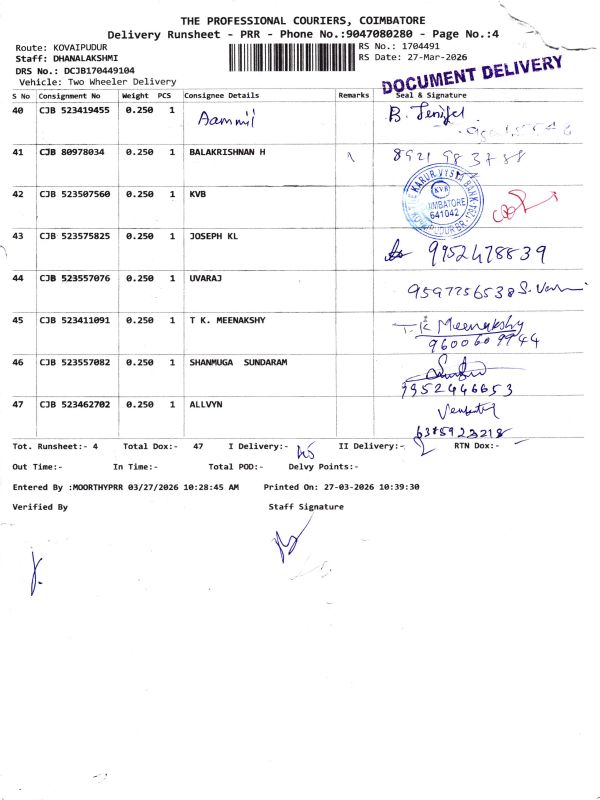 THE PROFESSIONAL COURIERS, COIMBATORE
Delivery Runsheet - PRR - Phone No.:9047080280 - Page No.:4
Route: KOVAIPUDUR RS No.: 1704491
Staff: DHANALAKSHMI RS Date: 27-Mar-2026
DRS No.: DCJB170449104
Vehicle: Two Wheeler Delivery
DOCUMENT DELIVERY
S No Consignment No Weight PCS Consignee Details Remarks Seal & Signature
40 CJB 523419455 0.250 1 Aammii B. Jenifer
41 CJB 80978034 0.250 1 BALAKRISHNAN H 8921983788
42 CJB 523507560 0.250 1 KVB
KARUR VYSYA BANK
KVB
COIMBATORE
641042
43 CJB 523575825 0.250 1 JOSEPH KL 9952478839
44 CJB 523557076 0.250 1 UVARAJ 9597756538
45 CJB 523411091 0.250 1 T K. MEENAKSHY T.K Meenakshy
9600609944
46 CJB 523557082 0.250 1 SHANMUGA SUNDARAM
9952446653
47 CJB 523462702 0.250 1 ALLVYN
6385923218
Tot. Runsheet:- 4 Total Dox:- 47 I Delivery:- II Delivery:- RTN Dox:-
Out Time:- In Time:- Total POD:- Delvy Points:-
Entered By :MOORTHYPRR 03/27/2026 10:28:45 AM Printed On: 27-03-2026 10:39:30
Verified By Staff Signature